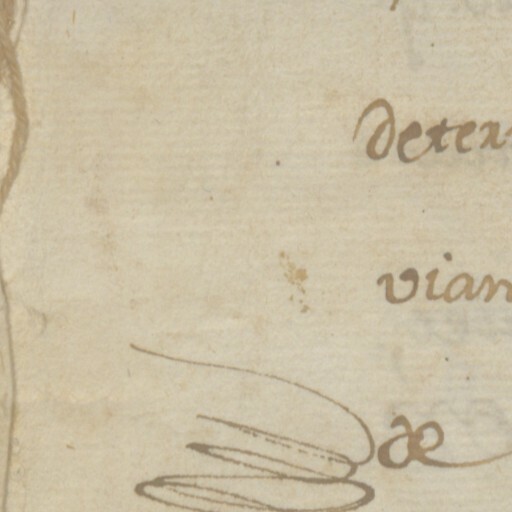 deter
vian
de